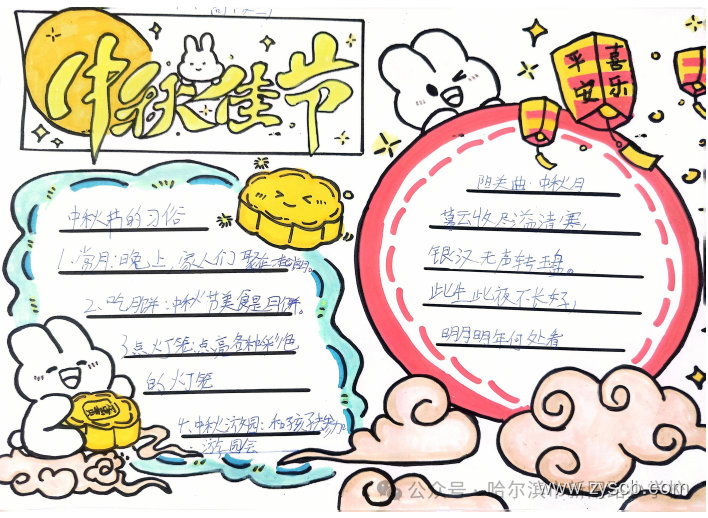 中秋佳节
喜乐
平安
中秋节的习俗
1、赏月:晚上,家人们聚在
2、吃月饼:中秋节美食是月饼。
3点灯笼:点亮各种彩色
的灯笼
4、中秋游园:和孩子
游园会
阳关曲·中秋月
暮云收尽溢清寒,
银汉无声转玉盘。
此生此夜不长好,
明月明年何处看
公众号·哈尔滨
www.zyscb.com